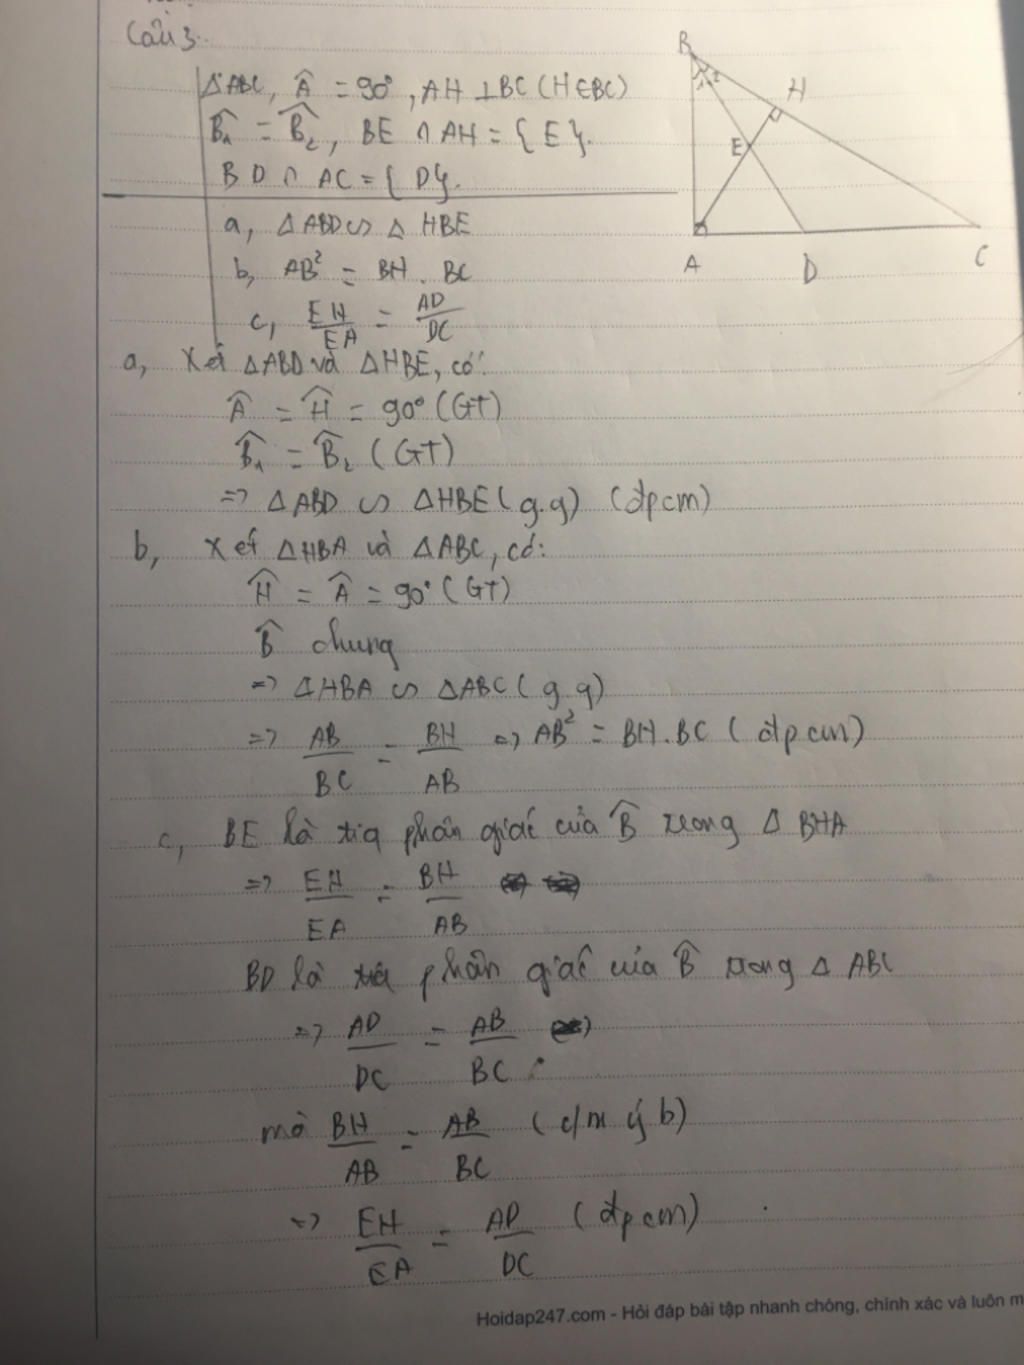 Câu 3.
B
1 2
H
E
A
D
C
ΔABC, Â = 90°, AH ⊥ BC (H ∈ BC)
B̂₁ = B̂₂, BE ∩ AH = { E }.
BD ∩ AC = { D }.
a, Δ ABD ∽ Δ HBE
b, AB² = BH . BC
c, EH/EA = AD/DC
a, Xét ΔABD và ΔHBE, có:
Â = Ĥ = 90° (GT)
B̂₁ = B̂₂ (GT)
=> Δ ABD ∽ ΔHBE (g.g) (đpcm)
b, Xét ΔHBA và ΔABC, có:
Ĥ = Â = 90° (GT)
B̂ chung
=> ΔHBA ∽ ΔABC (g.g)
=> AB/BC = BH/AB => AB² = BH.BC (đpcm)
c, BE là tia phân giác của B̂ trong Δ BHA
=> EH/EA = BH/AB
BD là tia phân giác của B̂ trong Δ ABC
=> AD/DC = AB/BC
mà BH/AB = AB/BC (c/m ý b)
=> EH/EA = AD/DC (đpcm)
Hoidap247.com - Hỏi đáp bài tập nhanh chóng, chính xác và luôn m